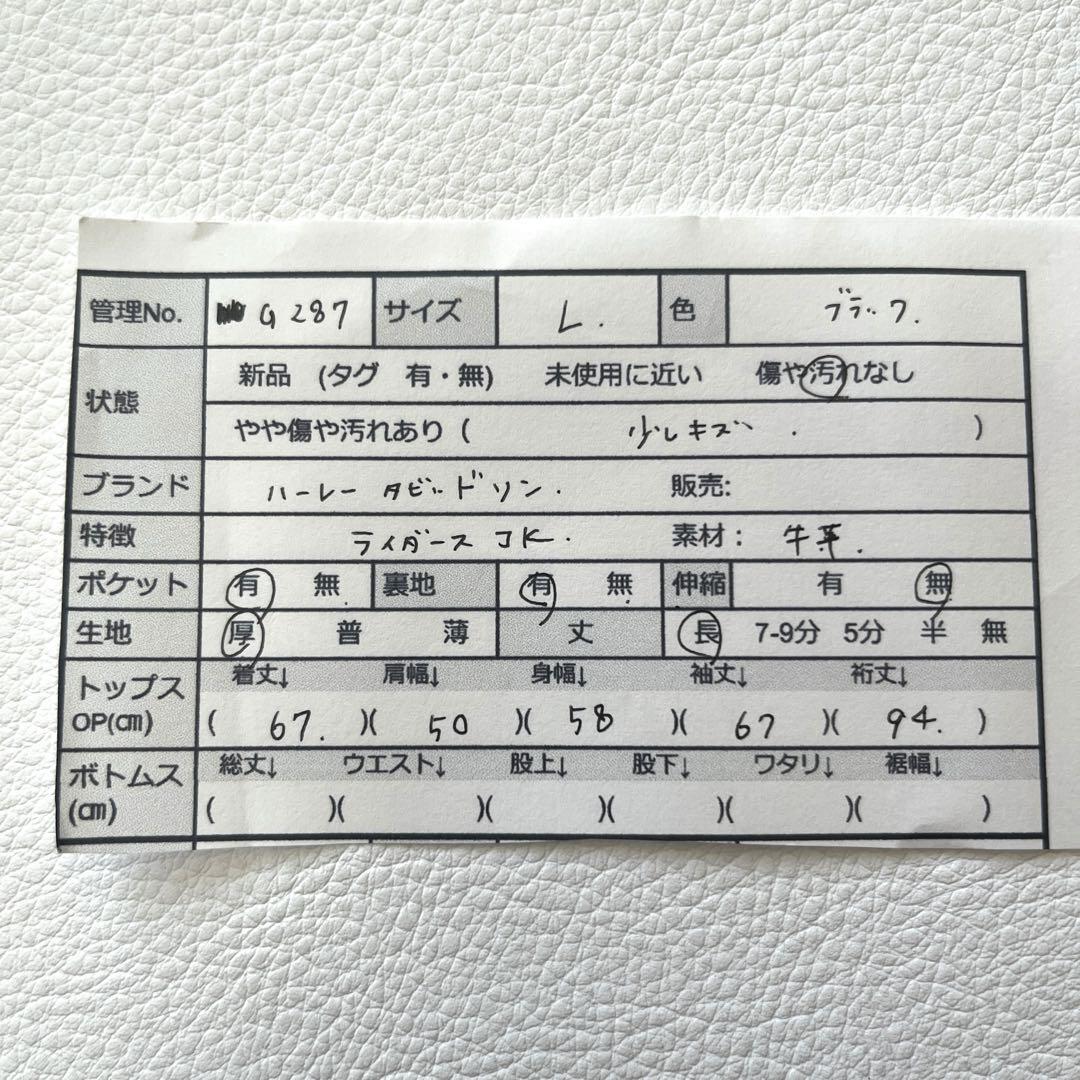 管理No. G 287 サイズ L. 色 ブラック.
状態 新品 (タグ 有・無) 未使用に近い 傷や汚れなし
やや傷や汚れあり ( 少しキズ . )
ブランド ハーレーダビッドソン. 販売:
特徴 ライダースJK. 素材: 牛革.
ポケット 有 無 裏地 有 無 伸縮 有 無
生地 厚 普 薄 丈 長 7-9分 5分 半 無
トップス OP(㎝) 着丈↓ 肩幅↓ 身幅↓ 袖丈↓ 裄丈↓
( 67. )( 50 )( 58 )( 67 )( 94. )
ボトムス (㎝) 総丈↓ ウエスト↓ 股上↓ 股下↓ ワタリ↓ 裾幅↓
( )( )( )( )( )( )